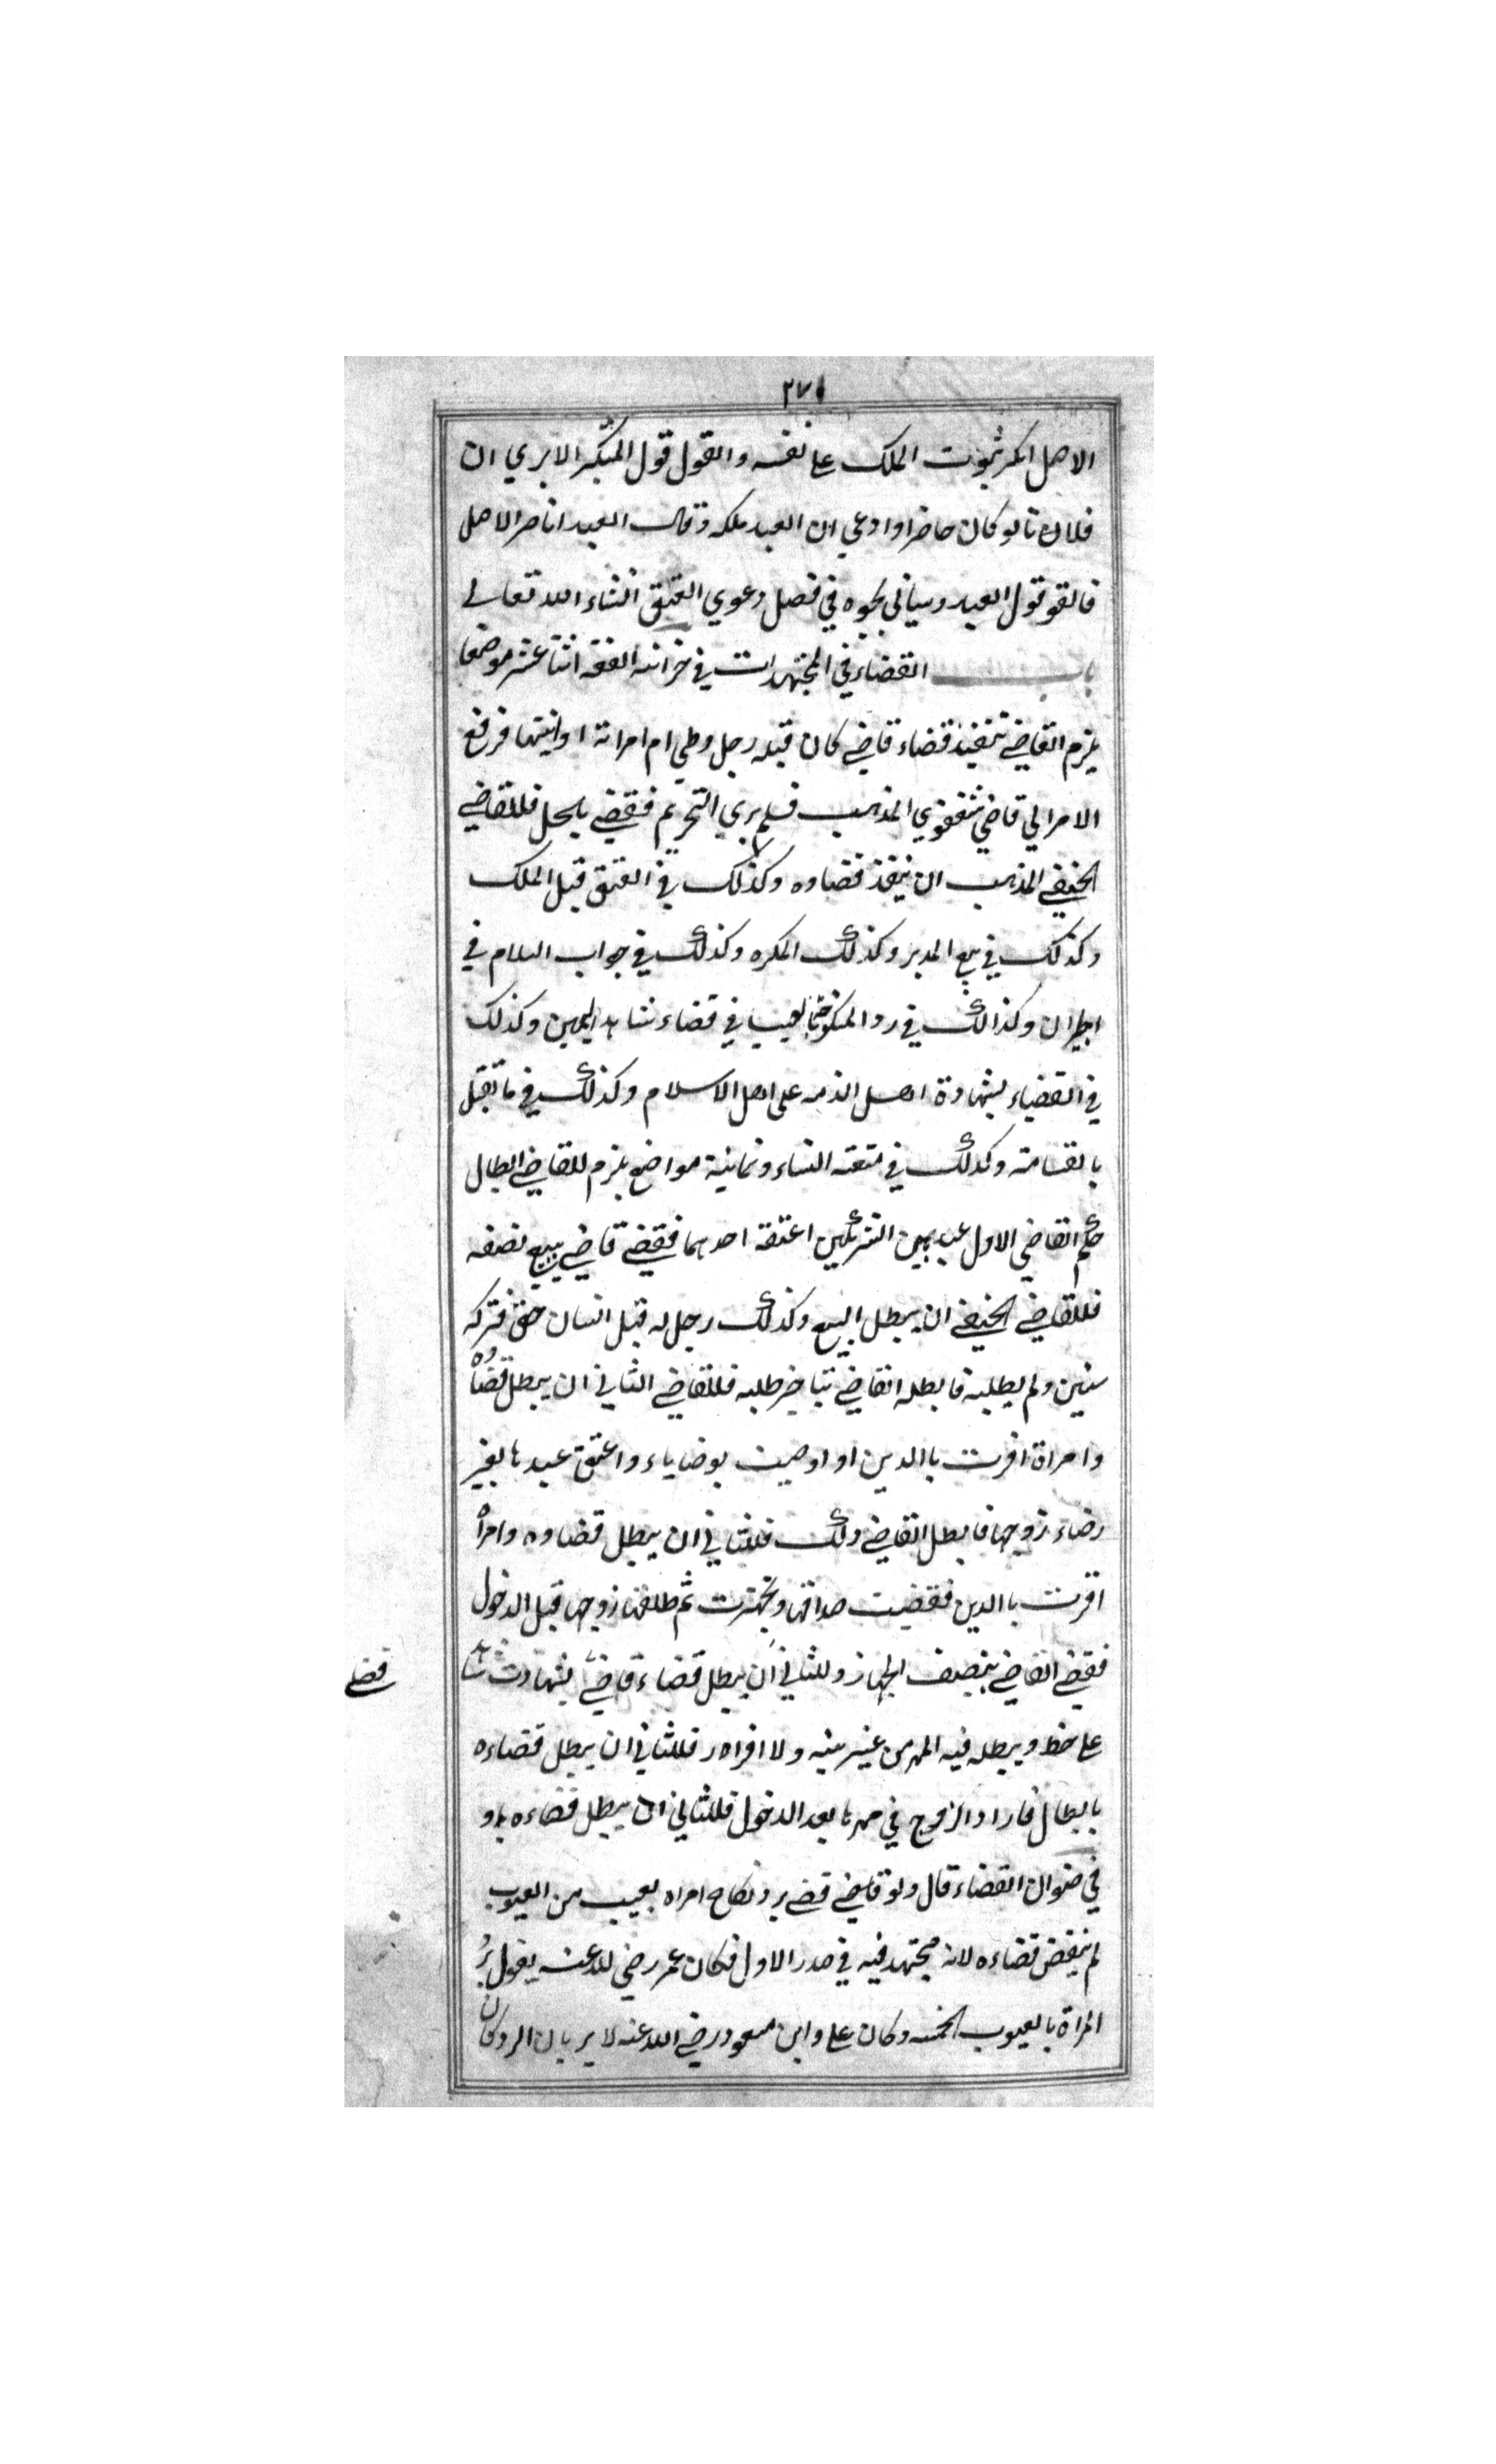 ٢٧١
الاصل انكر ثبوت الملك على نفسه والقول قول المنكر الا يري ان
فلان تا لو كان حاضرا وادعي ان العبد ملكه وقال العبد انا حر الاصل
فالقو قول العبد وسياتي نحوه في فصل دعوي العتق انشاء الله تعالي
باب القضاء في المجتهدات في خزانه الفقه اثنا عشر موضعا
يلزم القاضي تنفيذ قضاء قاضي كان قبله رجل وطي ام امراته او ابنتها فرفع
الامر الي قاضي شفعوي المذهب فلم يري التحريم فقضي بالحل فللقاضي
الحنيفي المذهب ان ينفذ قضاوه وكذلك في العتق قبل الملك
وكذلك في بيع المدبر وكذلك المكره وكذلك في جواب السلام في
وكذالك في رد المنكوحة بالعيب في قضاء شاهد اليمين وكذلك
في القضاء بشهادة اهل الذمه على اهل الاسلام وكذلك في ما تقبل
بالقسامة وكذلك في متعة النساء وثمانية مواضع يلزم للقاضي ابطال
حكم القاضي الاول عبد بين الشريكين اعتقه احدهما فقضي قاضي ببيع نصفه
فللقاضي الحنيفي ان يبطل البيع وكذلك رجل له قبل انسان حق فتركه
سنين ولم يطلبه فابطله القاضي بتاخير طلبه فللقاضي الثاني ان يبطل قضاوه
وامراة اقرت باالدين او اوصيت بوصاياء واعتق عبدها بغير
رضاء زوجها فابطل القاضي ذلك فللثاني ان يبطل قضاوه وامراة
اقرت باالدين فقضيت صداقها وتجهزت ثم طلقها زوجها قبل الدخول
فقضي القاضي بنصف الجهاز وللثاني ان يبطل قضاء قاضي بشهادت شاهد
قضي
على خط ويبطله فيه المهر من غير بينه ولا اقراه ر فللثاني ان يبطل قضاءه
بابطال فاراد الزوج في مهرها بعد الدخول فللثاني ان يبطل قضاءه
في صنوان القضاء قال ولو قاضي قضي برد نكاح امراه بعيب من العيوب
لم ينقض قضاءه لانه مجتهد فيه في صدر الاول فكان عمر رضي الله عنه يقول برد
المراة بالعيوب الخمسه وكان على وابن مسعود رضي الله عنه لا يريان الرد وكان